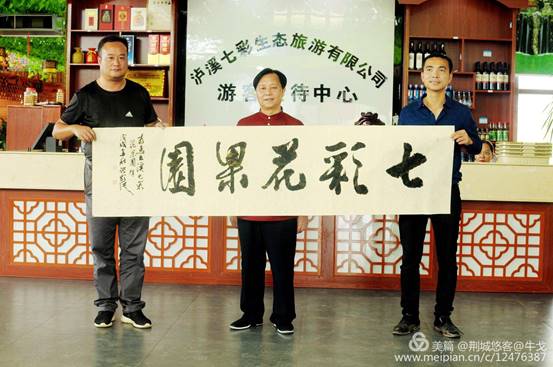 泸溪七彩生态旅游有限公司
游客待中心
七彩花果園
美篇 @荆城悠客@牛戈
www.meipian.cn/c/12476387